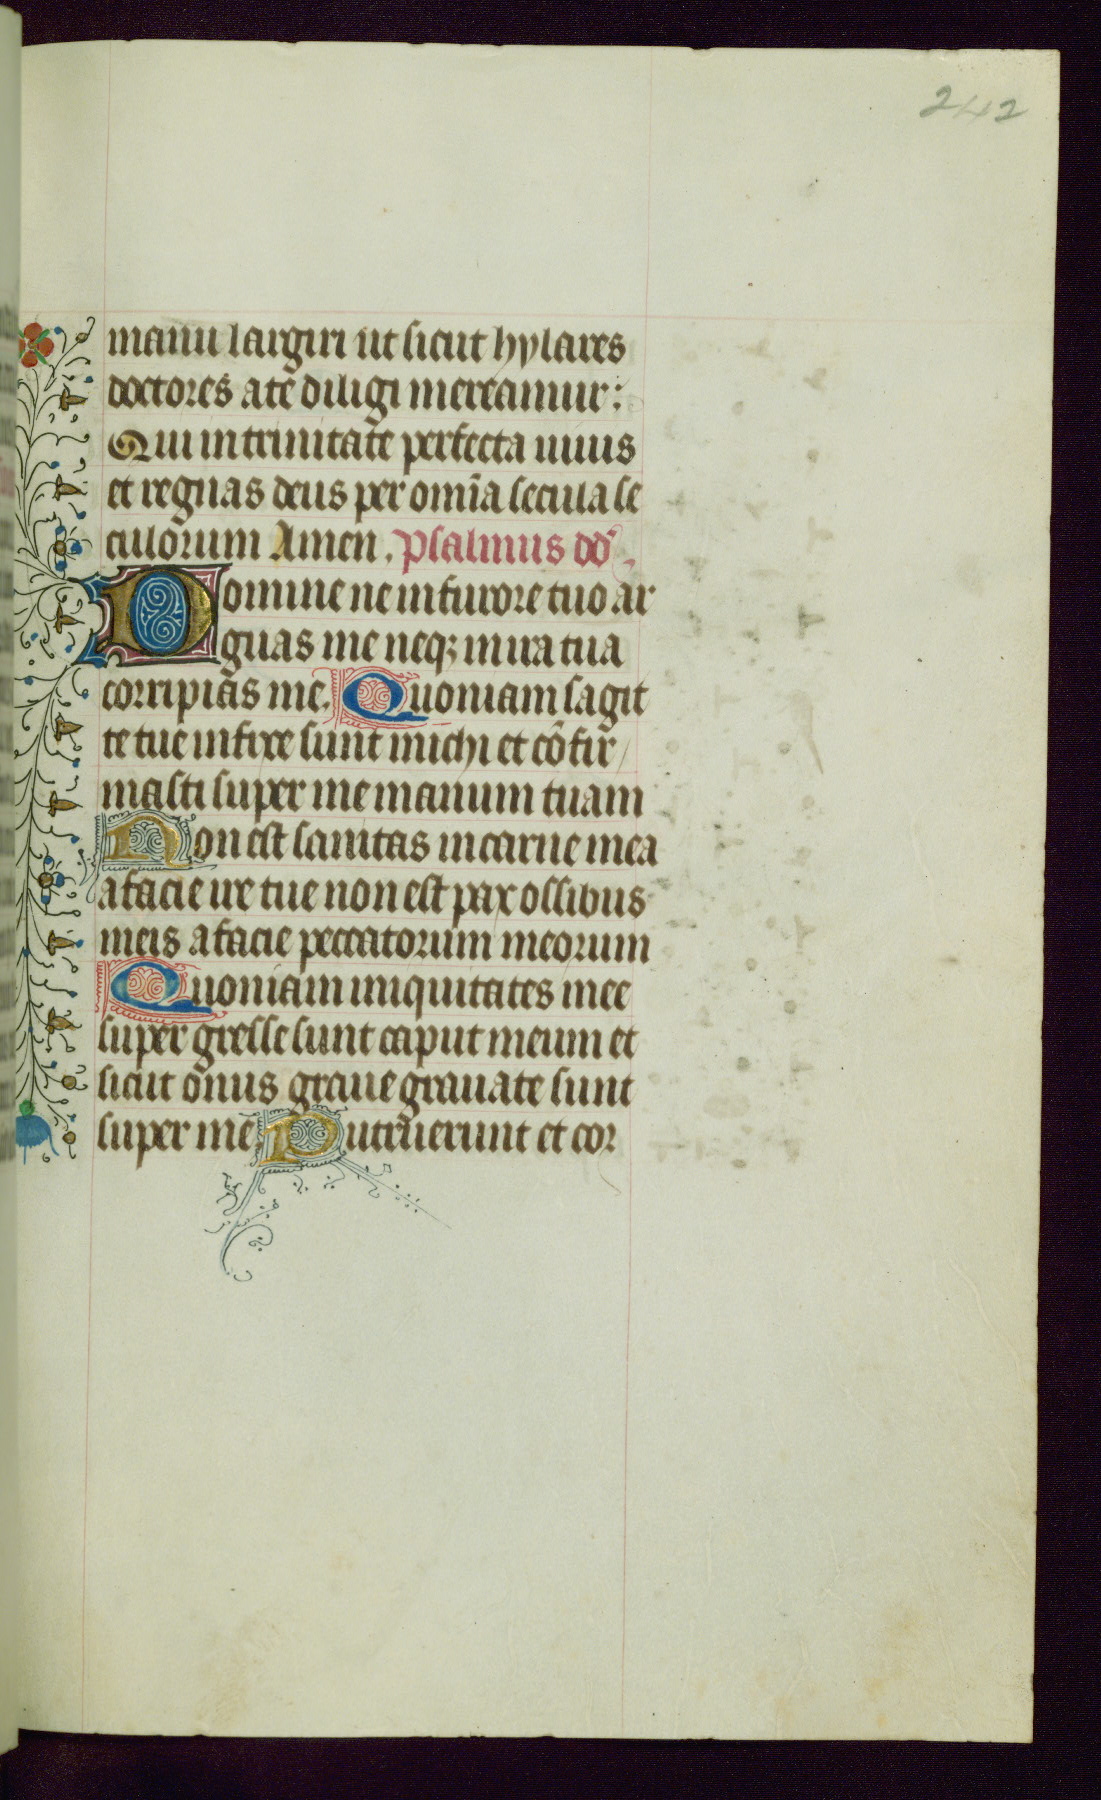 242
manu largiri ut sicut hylares
doctores a te diligi mereamur:
Qui in trinitate perfecta uiuis
et regnas deus per om̄ia secula se
culorum Amen. psalmus dd̄.
Domine ne in furore tuo ar
guas me neqꝫ in ira tua
corripias me. Quoniam sagit
te tue infixe sunt michi et cōfir
masti super me manum tuam
Non est sanitas in carne mea
a facie ire tue non est pax ossibus
meis a facie peccatorum meorum
Quoniam iniquitates mee
super gresse sunt caput meum et
sicut onus graue grauate sunt
super me Putruerunt et cor